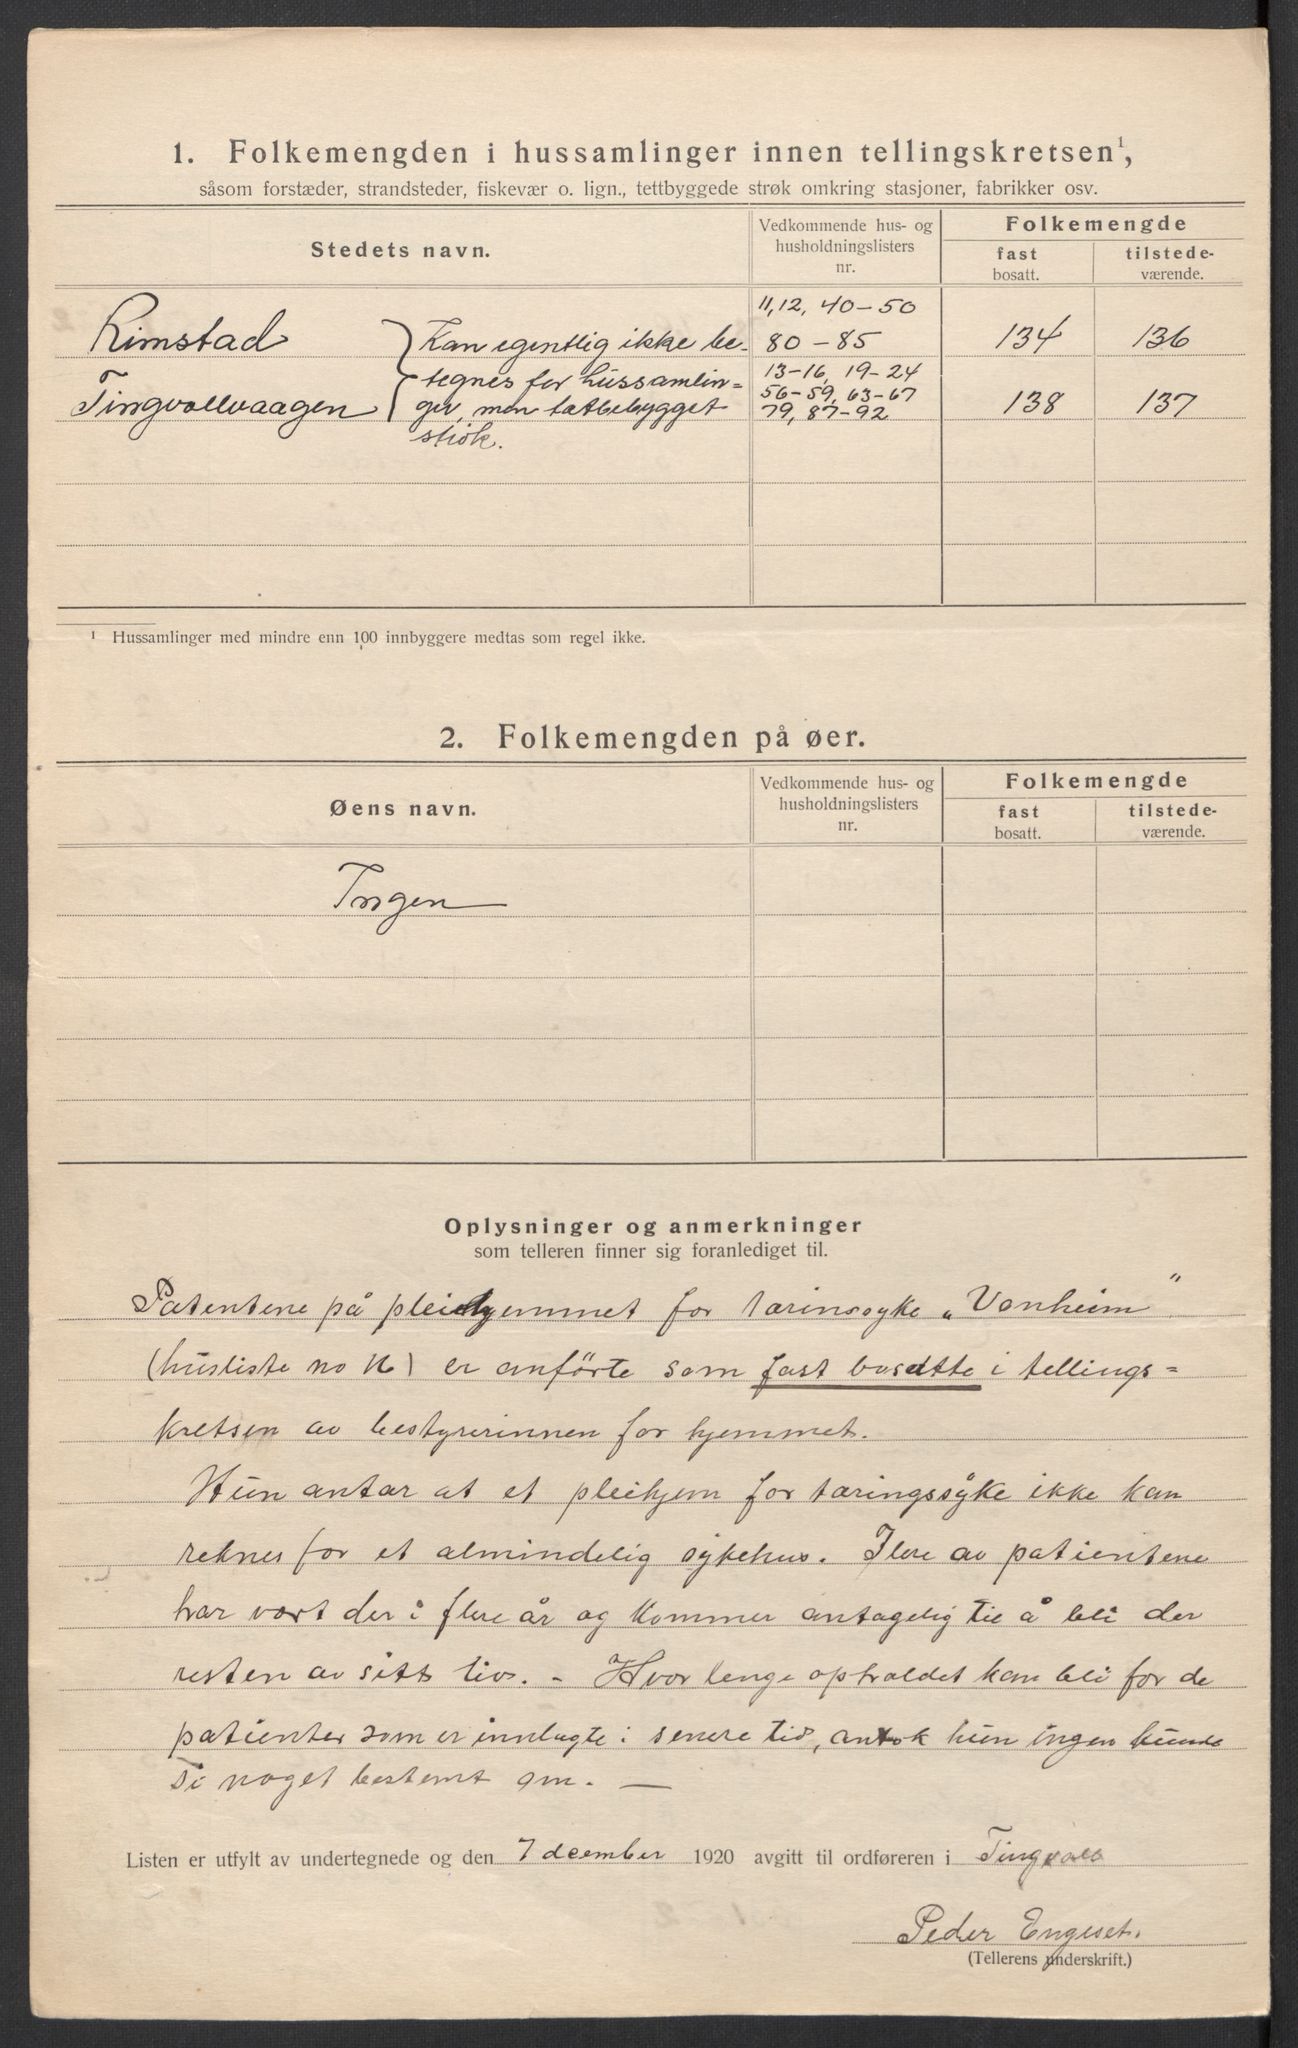 1. Folkemengden i hussamlinger innen tellingskretsen¹,
såsom forstæder, strandsteder, fiskevær o. lign., tettbyggede strøk omkring stasjoner, fabrikker osv.
Stedets navn.
Vedkommende hus- og husholdningslisters nr.
Folkemengde
fast bosatt.
tilstede-værende.
11, 12, 40-50
Rimstad Kan egentlig ikke be- 80-85 134 136
tegnes for hussamlin= 13-16, 19-24
56-59, 63-67
Tingvollvaagen ger, men tætbebygget 79, 87-92 138 137
strøk.
¹ Hussamlinger med mindre enn 100 innbyggere medtas som regel ikke.
2. Folkemengden på øer.
Øens navn.
Vedkommende hus- og husholdningslisters nr.
Folkemengde
fast bosatt.
tilstede-værende.
Ingen
Oplysninger og anmerkninger
som telleren finner sig foranlediget til.
Patentene på pleiehjemmet for tæringsyke „Vonheim"
(husliste no) er anførte som fast bosatte i tellings=
kretsen av bestyrerinnen for hjemmet.
Hun antar at et pleihjem for tæringssyke ikke kan
reknes for et almindelig sykehus. Flere av patientene
har vært der i flere år og kommer antagelig til å bli der
resten av sitt liv. - Hvor lenge opholdet kan bli for de
patienter som er innlagte i senere tid, antok hun ingen kunde
si noget bestemt om. —
Listen er utfylt av undertegnede og den 7 december 1920 avgitt til ordføreren i Tingvoll
Peder Engeset.
(Tellerens underskrift.)